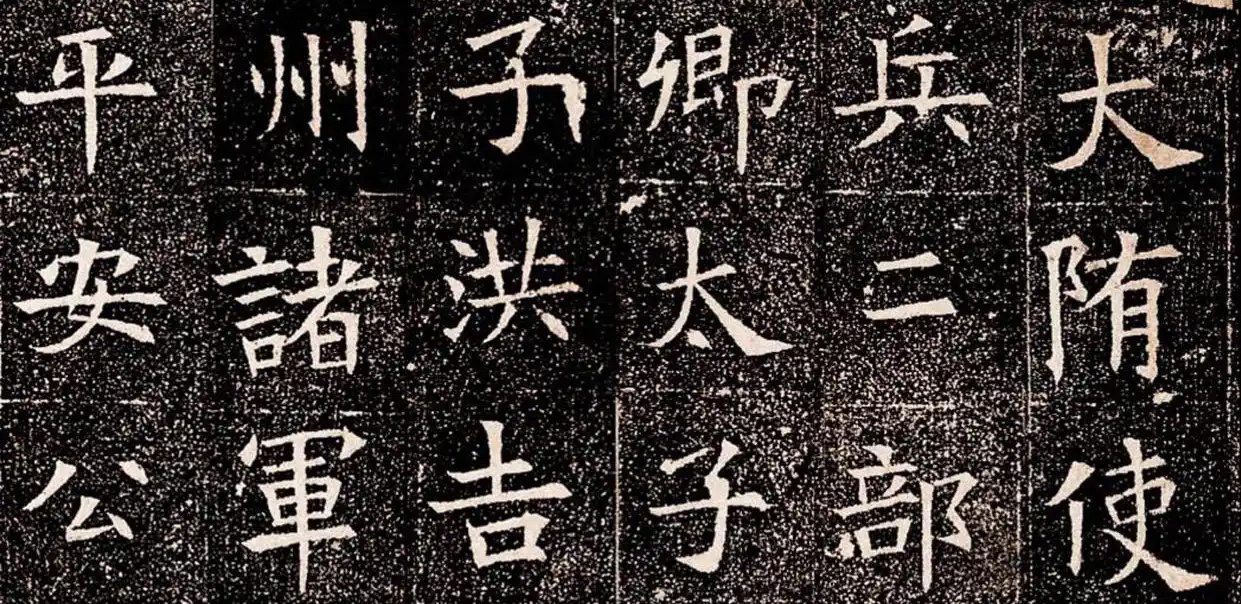 大陏使
兵二部
卿太子
子洪吉
州諸軍
平安公